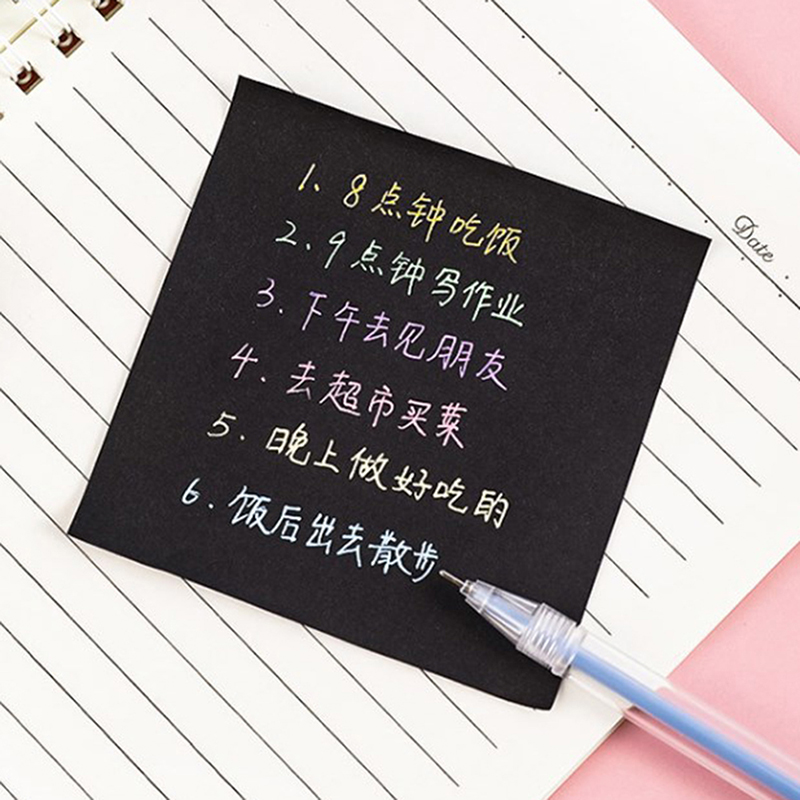 1、8点钟吃饭
2、9点钟写作业
3、下午去见朋友
4.去超市买菜
5.晚上做好吃的
6.饭后出去散步
Date